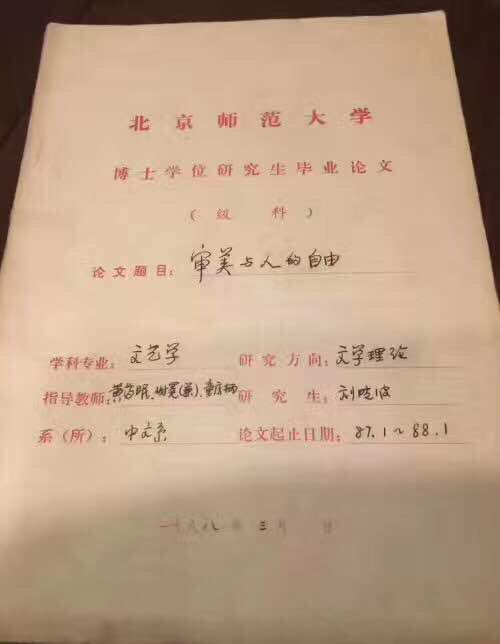 北京师范大学
博士学位研究生毕业论文
（ 级 科 ）
论文题目：审美与人的自由
学科专业：文艺学 研究方向：文学理论
指导教师：黄药眠、 童庆炳 研究生：刘晓波
系（所）：中文系 论文起止日期：87.1～88.1
一九八八年三月 日